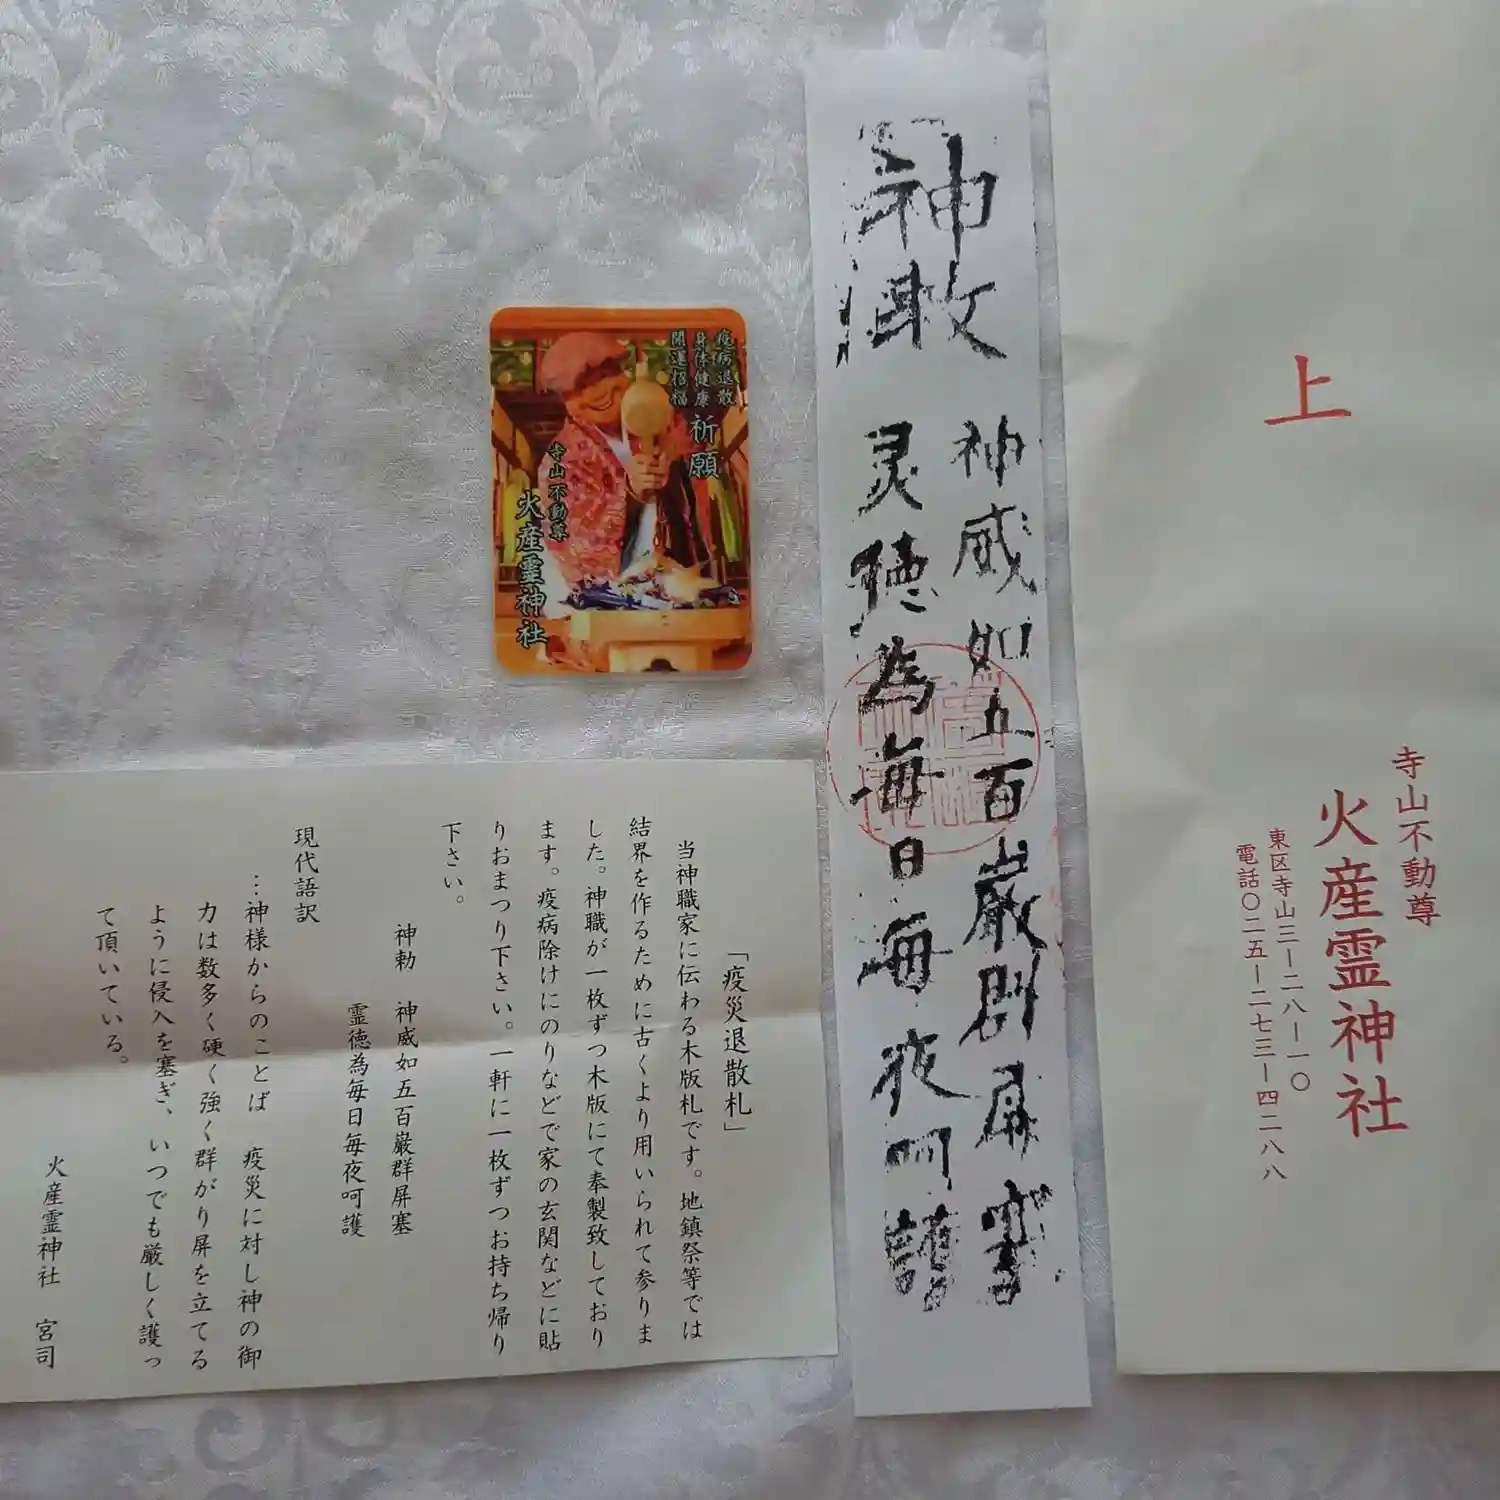 上
寺山不動尊
火産霊神社
東区寺山三ー二八ー一〇
電話〇二五ー二七三ー四二八八
神敕
神威如五百巌群屏塞
灵徳為毎日毎夜呵護
疫病退散
身体健康
開運招福
祈願
寺山不動尊
火産霊神社
「疫災退散札」
当神職家に伝わる木版札です。地鎮祭等では
結界を作るために古くより用いられて参りま
した。神職が一枚ずつ木版にて奉製致しており
ます。疫病除けにのりなどで家の玄関などに貼
りおまつり下さい。一軒に一枚ずつお持ち帰り
下さい。
神勅 神威如五百巌群屏塞
霊徳為毎日毎夜呵護
現代語訳
…神様からのことば 疫災に対し神の御
力は数多く硬く強く群がり屏を立てる
ように侵入を塞ぎ、いつでも厳しく護っ
て頂いている。
火産霊神社 宮司